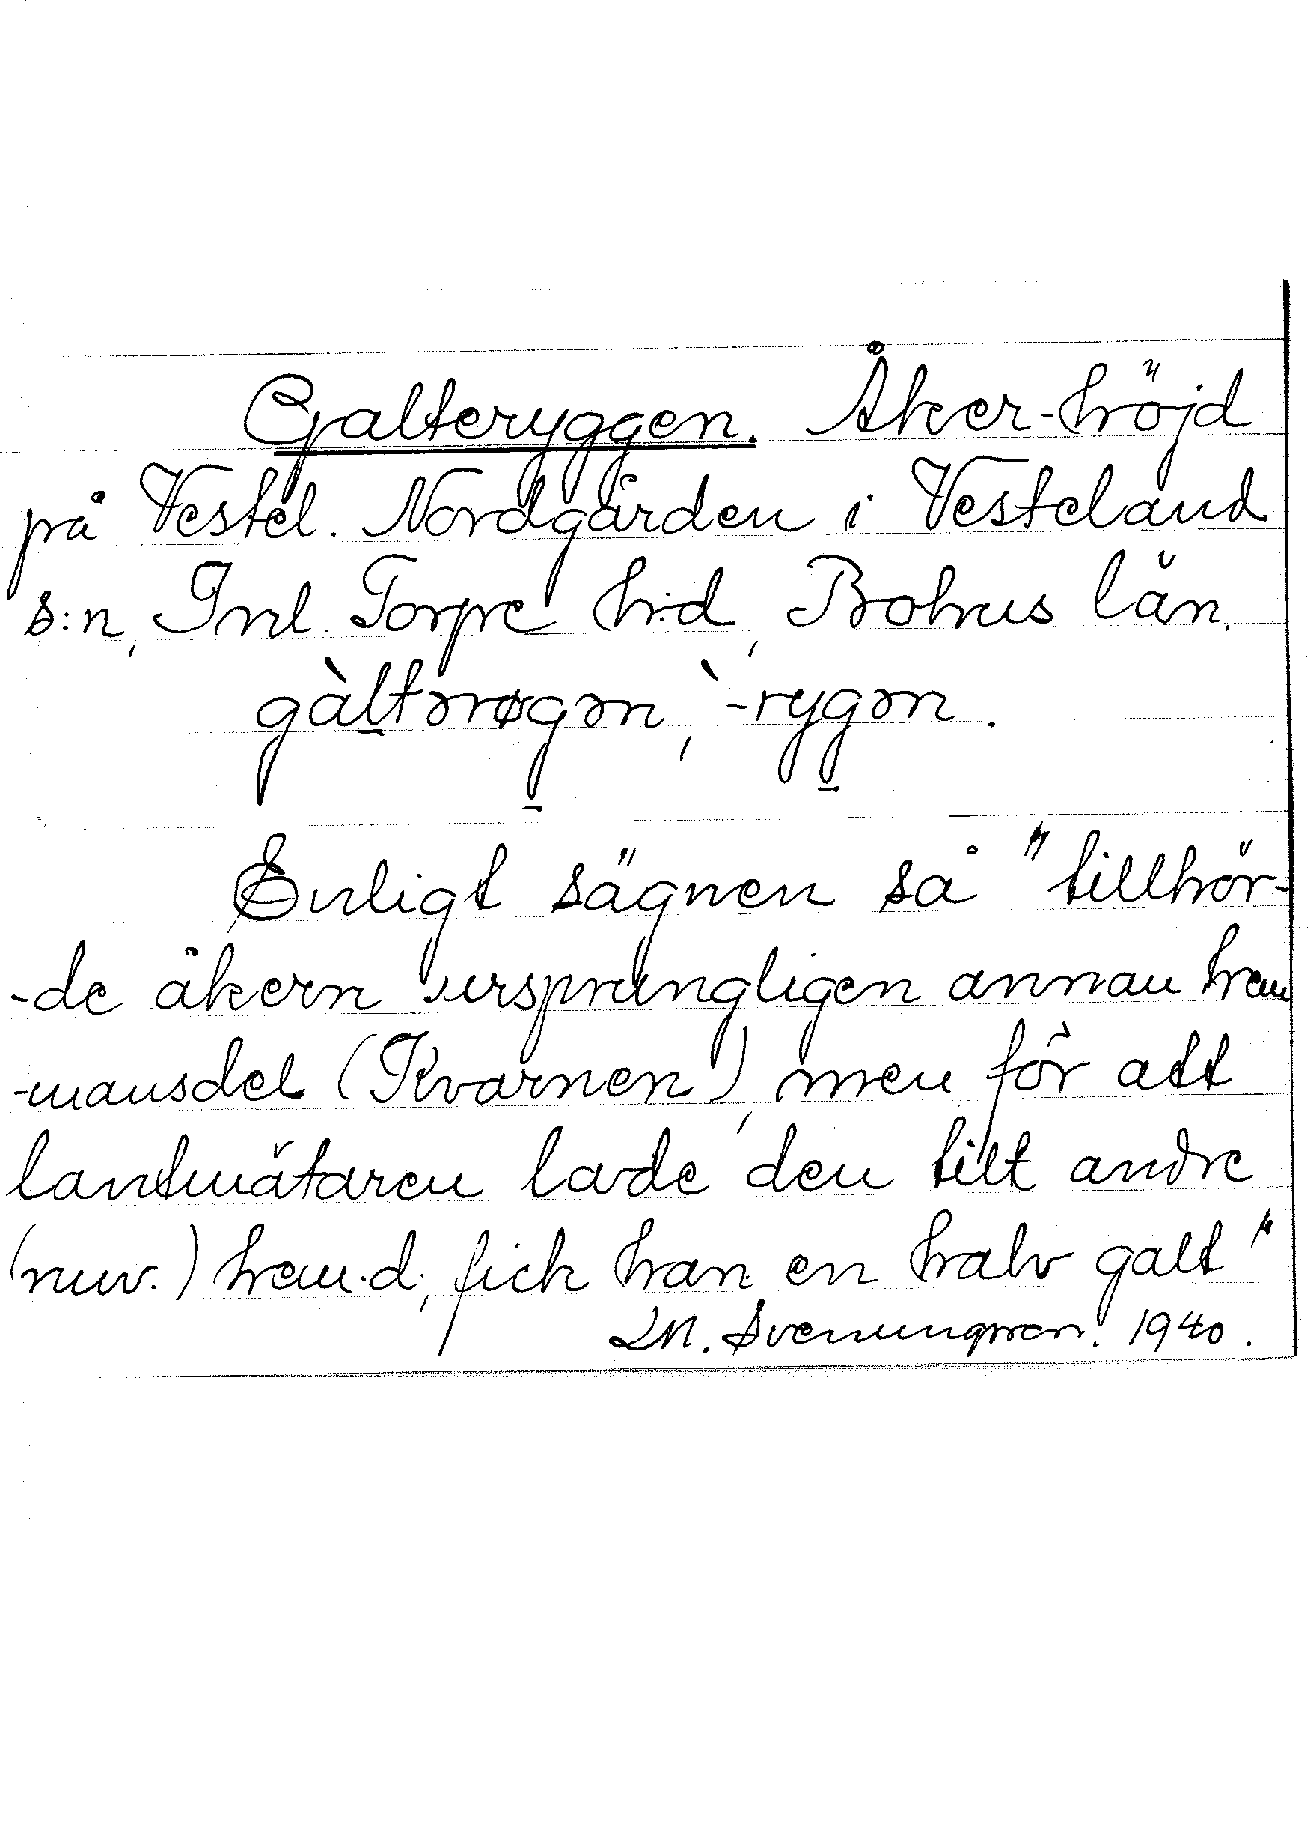 Galteryggen. Åker-höjd
på Vestel. Nordgården i Vesteland
s:n, Inl. Torpe h:d, Bohus län.
gàltərøgən, `-rygən.
Enligt sägnen så "tillhör-
-de åkern ursprungligen annan hem
-mansdel (Kvarnen), men för att
lantmätaren lade den till andre
(nuv.) hem.d., fick han en halv galt"
LM. Svenungsson. 1940.